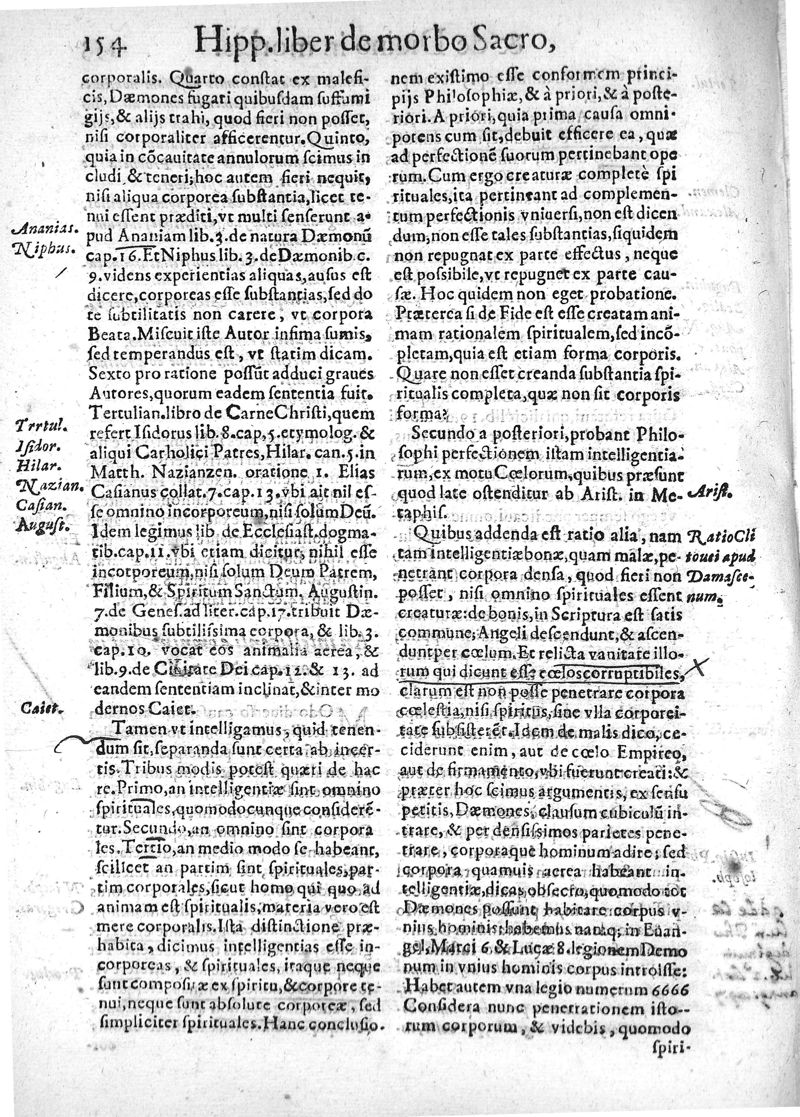 154 Hipp. liber de morbo Sacro,
corporalis. Quarto constat ex malefi-
cis, Dæmones fugari quibusdam suffumi
gijs, & alijs trahi, quod fieri non posset,
nisi corporaliter afficerentur. Quinto,
quia in cõcauitate annulorum scimus in
cludi, & teneri; hoc autem fieri nequit,
nisi aliqua corporea substantia, licet te-
nui essent præditi, vt multi senserunt a-
pud Ananiam lib. 3. de natura Dæmonũ
cap. 16. Et Niphus lib. 3. de Dæmonib. c.
9. videns experientias aliquas, ausus est
dicere, corporeas esse substantias, sed do
te subtilitatis non carere, vt corpora
Beata. Miscuit iste Autor infima sumis,
sed temperandus est, vt statim dicam.
Sexto pro ratione possũt adduci graues
Autores, quorum eadem sententia fuit.
Tertulian. libro de Carne Christi, quem
refert Isidorus lib. 8. cap, 5. etymolog. &
aliqui Catholici Patres, Hilar. can. 5. in
Matth. Nazianzen. oratione 1. Elias
Casianus collat. 7. cap. 13. vbi ait nil es-
se omnino incorporeum, nisi solum Deũ.
Idem legimus lib de Ecclesiast. dogma-
tib. cap. 11. vbi etiam dicitur, nihil esse
incorporeum, nisi solum Deum Patrem,
Filium, & Spiritum Sanctum. Augustin.
7. de Genes. ad liter. cap. 17. tribuit Dæ-
monibus subtilissima corpora, & lib. 3.
cap. 10. vocat eos animalia aerea, &
lib. 9. de Ciuitate Dei cap. 12. & 13. ad
eandem sententiam inclinat, & inter mo
dernos Caiet.
Tamen vt intelligamus, quid tenen-
dum sit, separanda sunt certa ab incer-
tis. Tribus modis potest quæri de hac
re. Primo, an intelligentiæ sint omnino
spirituales, quomodocunque considerẽ-
tur. Secundo, an omnino sint corpora
les. Tertio, an medio modo se habeant,
scilicet an partim sint spirituales, par-
tim corporales, sicut homo qui quo ad
animam est spiritualis, materia vero est
mere corporalis. Ista distinctione præ-
habita, dicimus intelligentias esse in-
corporeas, & spirituales, itaque neque
sunt compositæ ex spiritu, & corpore te-
nui, neque sunt absolute corporeæ, sed
simpliciter spirituales. Hanc conclusio-
Ananias.
Niphus.
Trrtul.
Isidor.
Hilar.
Nazian.
Casian.
August.
Caiet.
nem existimo esse conformem princi-
pijs Philosophiæ, & à priori, & à poste-
riori. A priori, quia prima causa omni-
potens cum sit, debuit efficere ea, quæ
ad perfectionẽ suorum pertinebant ope
rum. Cum ergo creaturæ complete spi
rituales, ita pertineant ad complemen-
tum perfectionis vniuersi, non est dicen
dum, non esse tales substantias, siquidem
non repugnat ex parte effectus, neque
est possibile, vt repugnet ex parte cau-
sæ. Hoc quidem non eget probatione.
Præterea si de Fide est esse creatam ani-
mam rationalem spiritualem, sed incõ-
pletam, quia est etiam forma corporis.
Quare non esset creanda substantia spi-
ritualis completa, quæ non sit corporis
forma?
Secundo a posteriori, probant Philo-
sophi perfectionem istam intelligentia-
rum, ex motu Cœlorum, quibus præsunt
quod late ostenditur ab Arist. in Me-
taphis.
Quibus addenda est ratio alia, nam
tam intelligentiæ bonæ, quam malæ, pe-
netrant corpora densa, quod fieri non
posset, nisi omnino spirituales essent
creaturæ: de bonis, in Scriptura est satis
commune; Angeli descendunt, & ascen-
dunt per cœlum. Et relicta vanitate illo-
rum qui dicunt esse cœlos corruptibiles,
clarum est non posse penetrare corpora
cœlestia, nisi spiritus, sine vlla corporei-
tate subsisterẽt. Idem de malis dico, ce-
ciderunt enim, aut de cœlo Empireo,
aut de firmamento, vbi fuerunt creati: &
præter hoc scimus argumentis, ex sensu
petitis, Dæmones, clausum cubiculũ in-
trare, & per densissimos parietes pene-
trare, corporaque hominum adire; sed
corpora quamuis aerea habeant in-
telligentiæ, dicas obsecro, quomodo tot
Dæmones possunt habitare corpus v-
nius hominis: habemus nanq; in Euan-
gel. Marci 6. & Lucæ 8. legionem Demo
num in vnius hominis corpus introisse:
Habet autem vna legio numerum 6666
Considera nunc penetrationem isto-
rum corporum, & videbis, quomodo
spiri-
Arist.
Ratio Cli
touei apud
Damasce-
num.